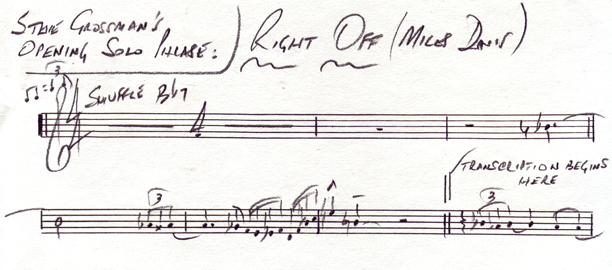 STEVE GROSSMAN'S
OPENING SOLO PHRASE:
RIGHT OFF (MILES DAVIS)
3
SHUFFLE Bb7
4
TRANSCRIPTION BEGINS
HERE
3
3